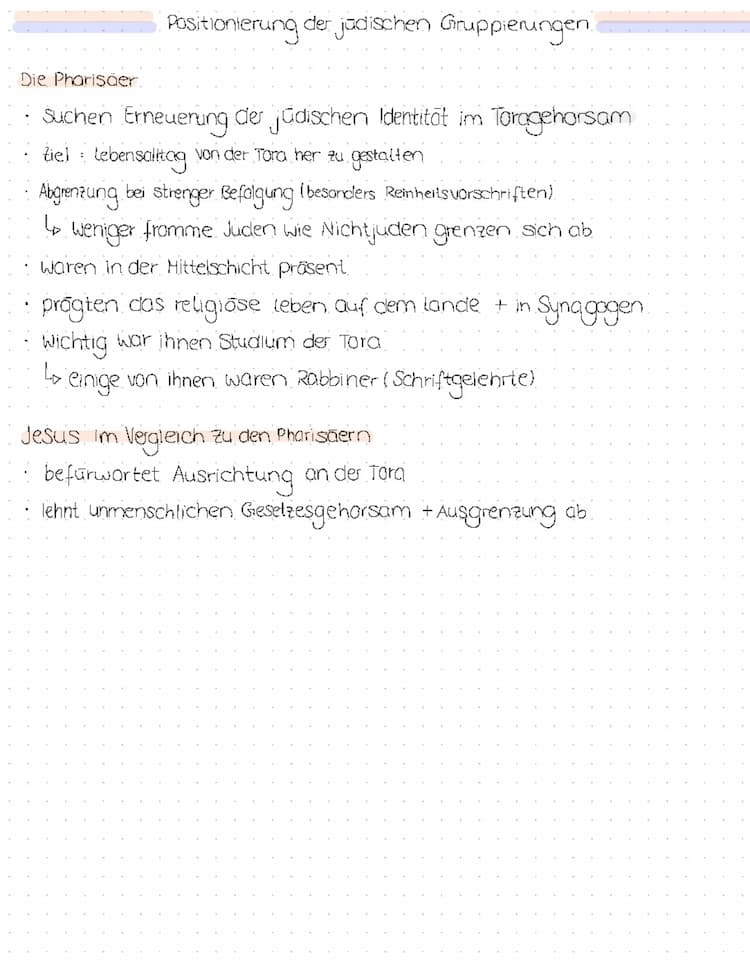 Positionierung der jüdischen Gruppierungen
Die Pharisäer
· suchen Erneuerung der jüdischen Identität im Toragehorsam
· Ziel : Lebensalltag von der Tora her zu gestalten
· Abgrenzung bei strenger Befolgung (besonders Reinheitsvorschriften)
↳ weniger fromme Juden wie Nichtjuden grenzen sich ab
· waren in der Mittelschicht präsent
· prägten das religiöse Leben auf dem Lande + in Synagogen
· wichtig war ihnen Studium der Tora
↳ einige von ihnen waren Rabbiner (Schriftgelehrte)
Jesus im Vergleich zu den Pharisäern
· befürwortet Ausrichtung an der Tora
· lehnt unmenschlichen Gesetzesgehorsam + Ausgrenzung ab